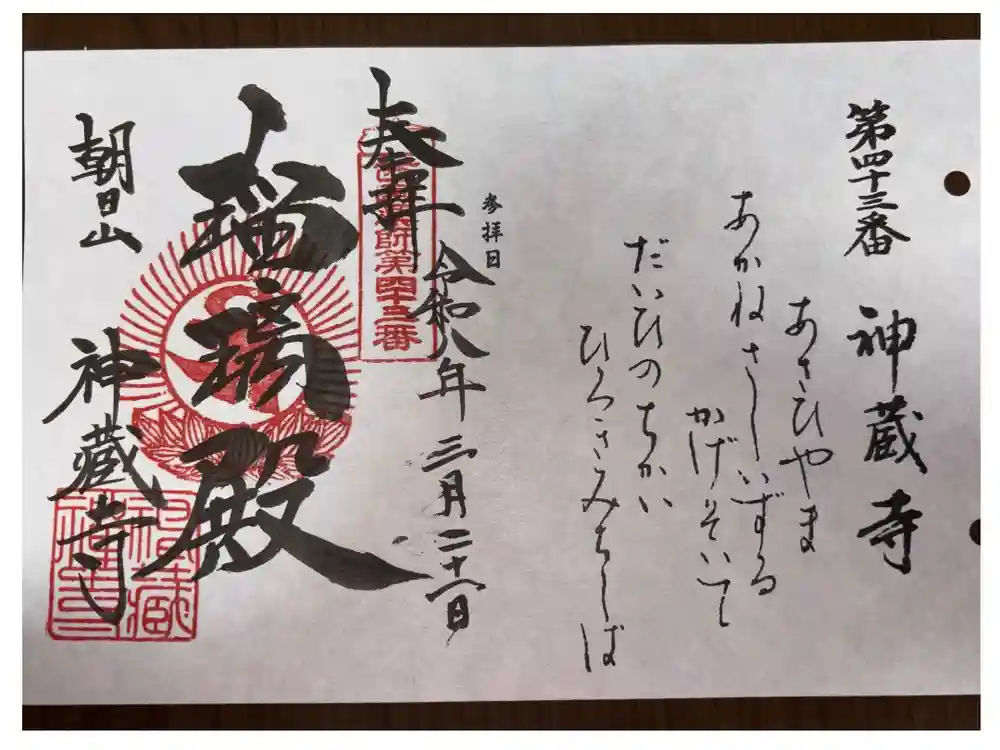 第四十三番 神蔵寺
あさひやま
あかねさしいずる
かげもそいて
だいひのちかい
ひろきみちしば
参拝日
奉拝 令和八年 三月二十一日
西国薬師第四十三番
瑠璃殿
朝日山 神蔵寺